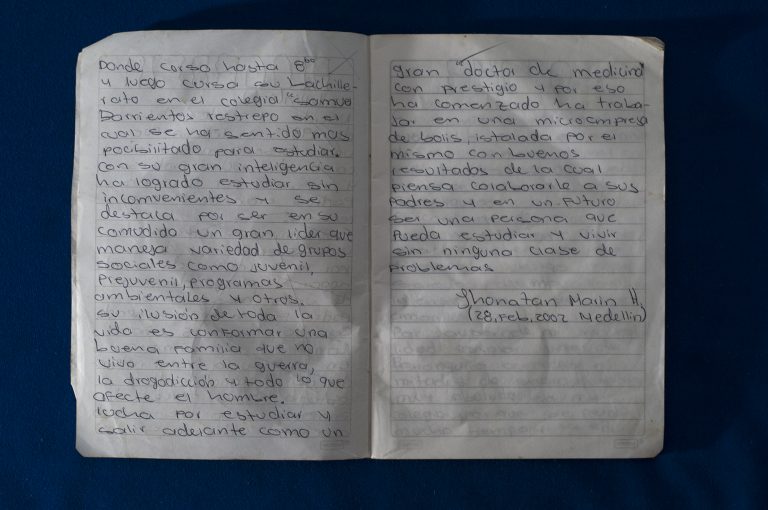 Donde curso hasta 8vo
y luego cursa su bachille-
rato en el colegio "Samuel
Barrientos restrepo en el
cual se ha sentido mas
pocibilitado para estudiar.
con su gran inteligencia
ha logrado estudiar sin
incomvenientes y se
destaca por ser en su
comudido un gran lider que
maneja variedad de grupos
sociales como juvenil,
prejuvenil, programas
ambientales y otros.
su ilusión de toda la
vida es conformar una
buena familia que no
viva entre la guerra,
la drogadicción y todo lo que
afecte el hombre.
lucha por estudiar y
salir adelante como un
gran "doctor de medicina"
con prestigio y por eso
ha comenzado ha traba-
jar en una microempresa
de bolis, istalada por el
mismo con buenos
resultados de la cual
piensa colaborarle a sus
padres y en un futuro
ser una persona que
pueda estudiar y vivir
sin ninguna clase de
problemas
Jhonatan Marin H.
(28, Feb, 2002 Medellin)